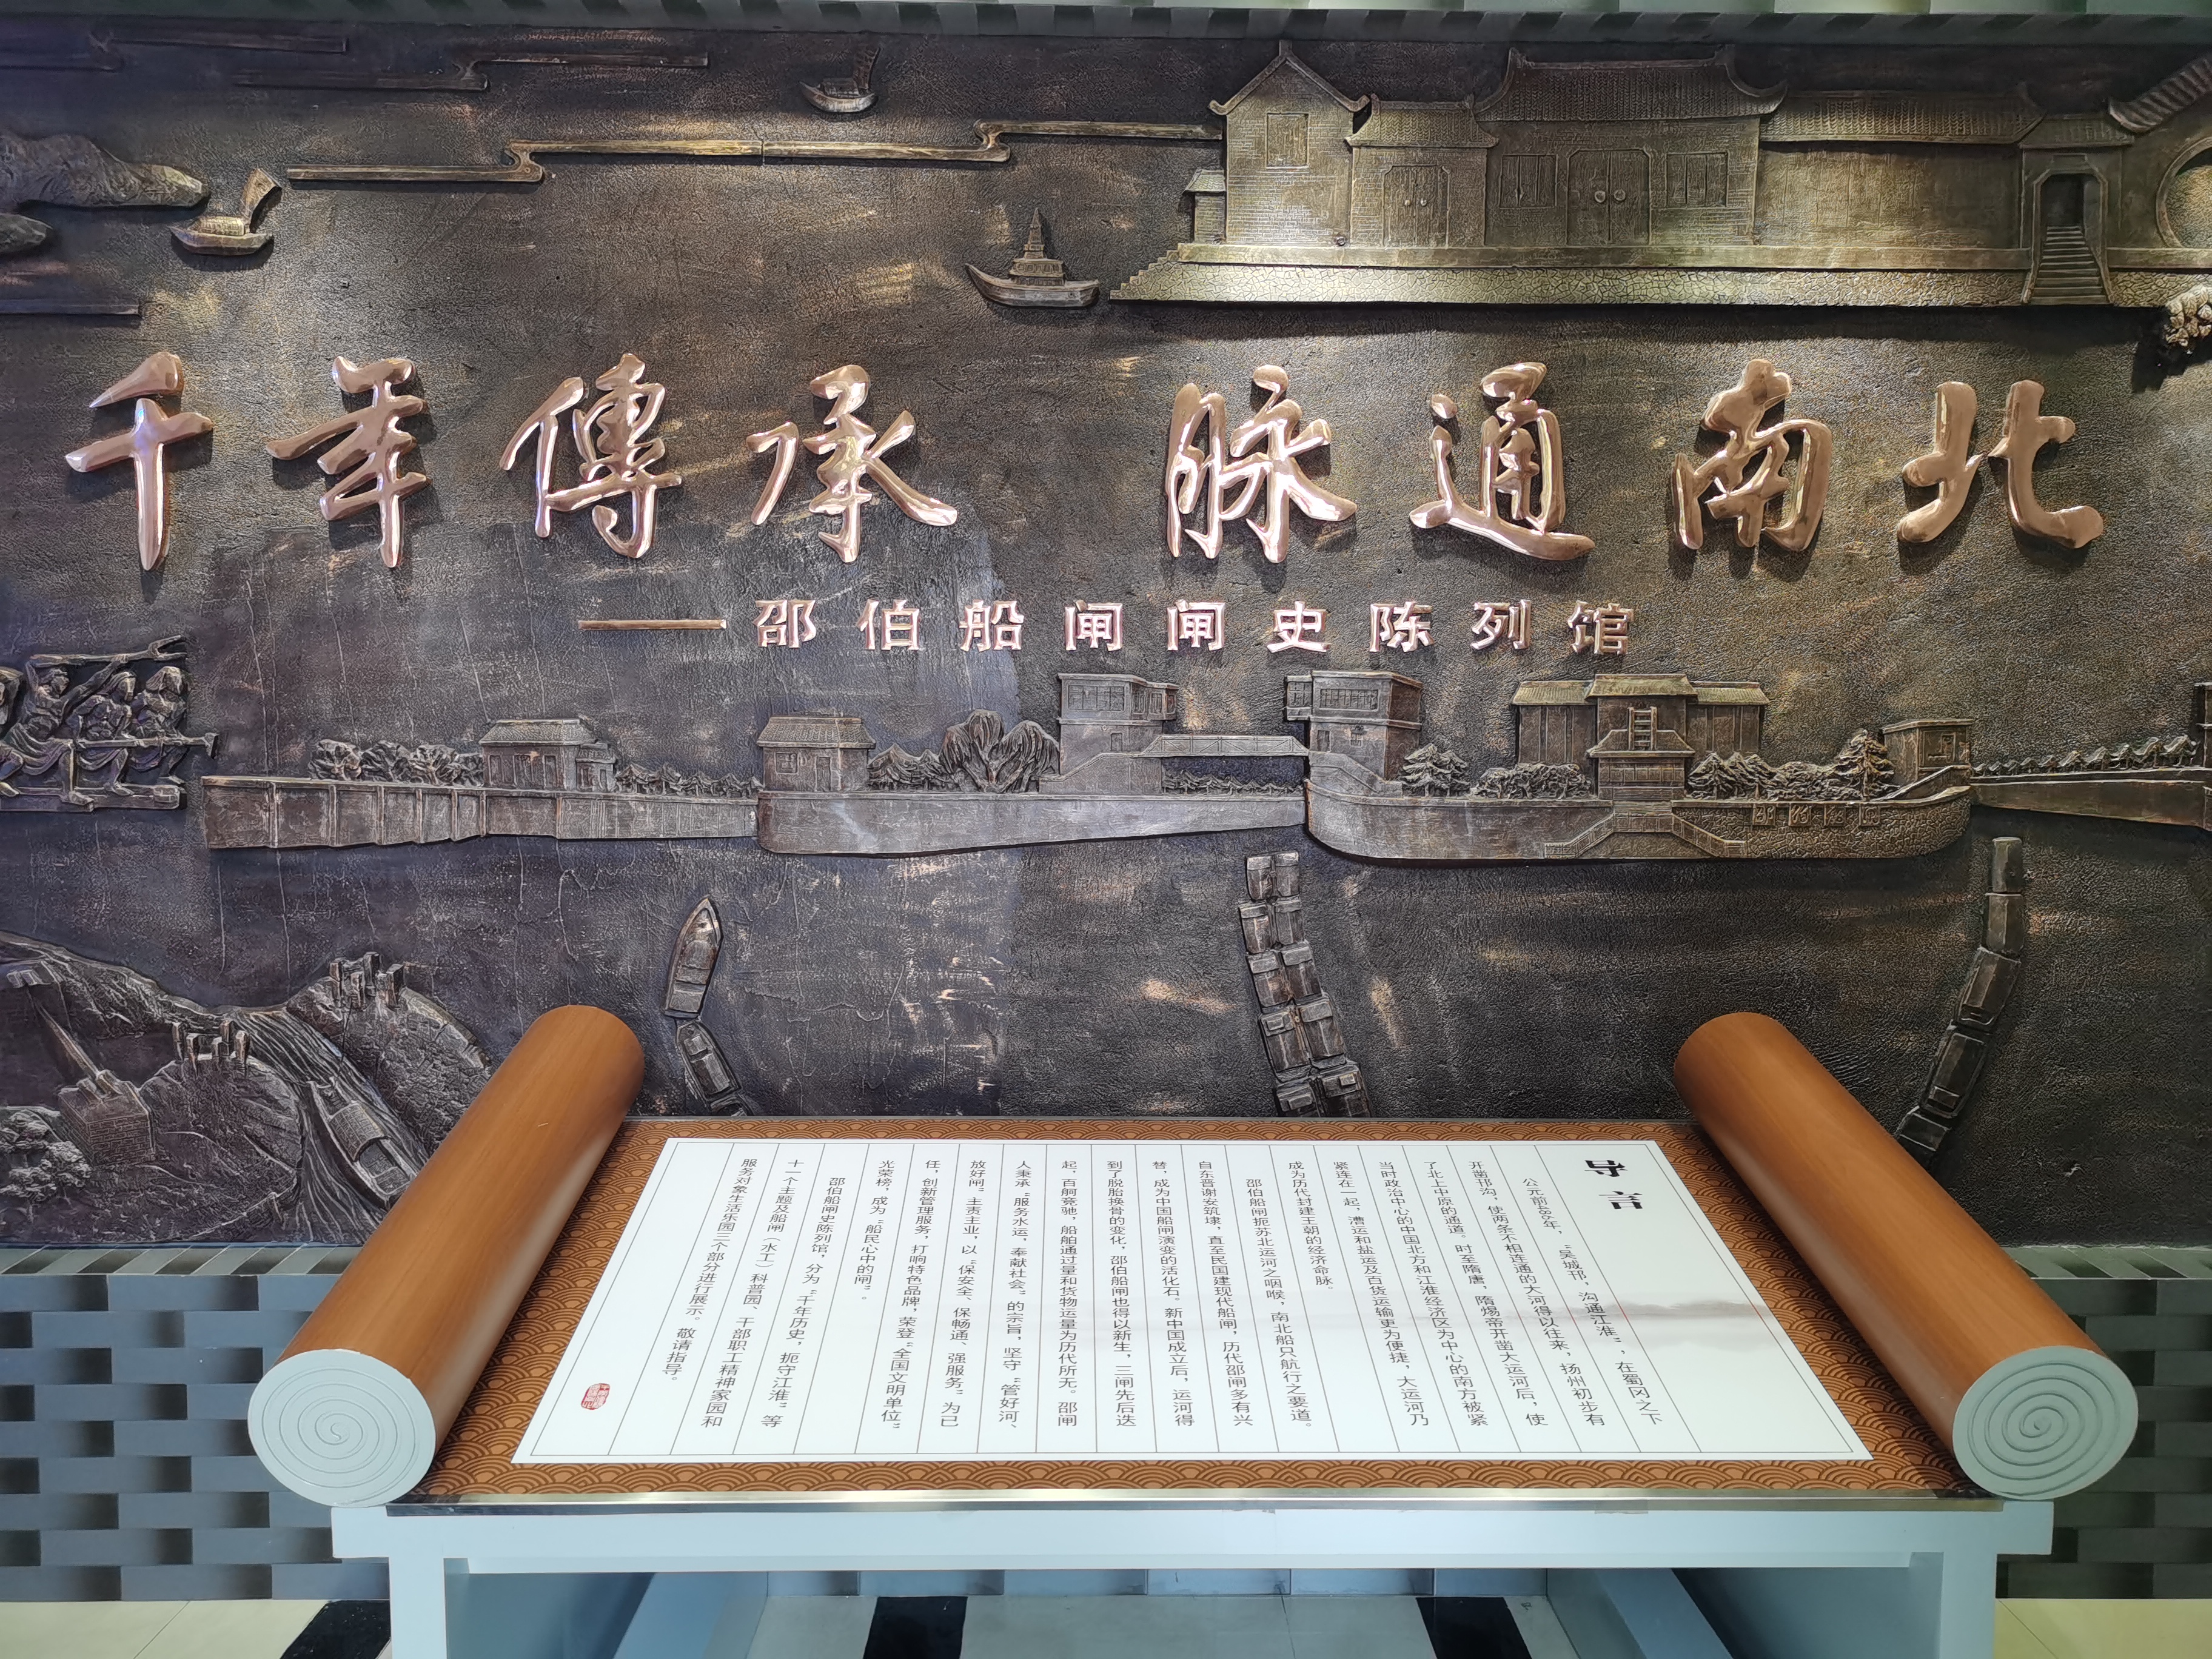 千年傳承 脉通南北
——邵伯船闸闸史陈列馆
导言
公元前486年，“吴城邗，沟通江淮”，在蜀冈之下
开凿邗沟，使两条不相连通的大河得以往来，扬州初步有
了北上中原的通道。时至隋唐，隋炀帝开凿大运河后，使
当时政治中心的中国北方和江淮经济区为中心的南方被紧
紧连在一起，漕运和盐运及百货运输更为便捷，大运河乃
成为历代封建王朝的经济命脉。
邵伯船闸扼苏北运河之咽喉，南北船只航行之要道。
自东晋谢安筑埭，直至民国建现代船闸，历代邵闸多有兴
替，成为中国船闸演变的活化石。新中国成立后，运河得
到了脱胎换骨的变化，邵伯船闸也得以新生，三闸先后迭
起，百舸竞驰，船舶通过量和货物运量为历代所无。邵闸
人秉承“服务水运，奉献社会”的宗旨，坚守“管好河、
放好闸”主责主业，以“保安全、保畅通、强服务”为己
任，创新管理服务，打响特色品牌，荣登“全国文明单位”
光荣榜，成为“船民心中的闸”。
邵伯船闸史陈列馆，分为“千年历史，扼守江淮”等
十一个主题及船闸（水工）科普园、干部职工精神家园和
服务对象生活乐园三个部分进行展示。敬请指导。